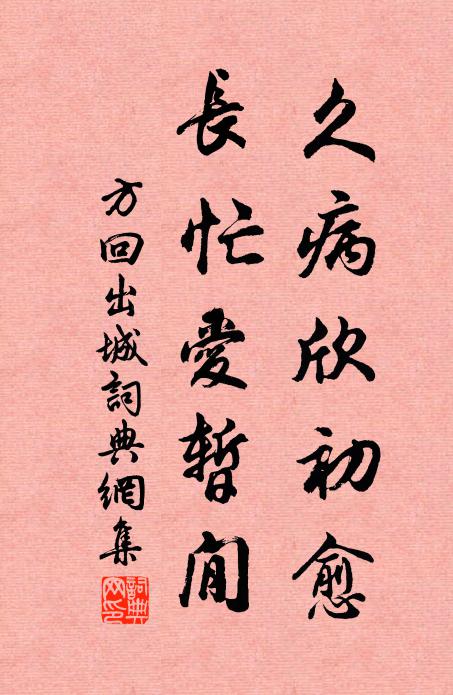 久病欣初愈
長忙愛暫閒
方回出城詞典網集
詞典網印